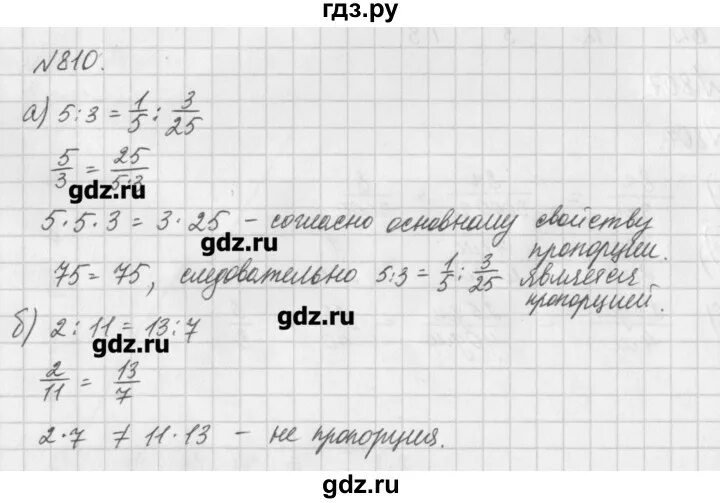 гдз.ру
№810.
а) 5:3 = 1/5 : 3/25
5/3 = 25/5·3
gdz.ru
5·5·3 = 3·25 – согласно основному свойству пропорции.
gdz.ru
75 = 75, следовательно 5:3 = 1/5 : 3/25 является пропорцией.
gdz.ru
б) 2:11 = 13:7
gdz.ru
2/11 = 13/7
2·7 ≠ 11·13 – не пропорция.
gdz.ru